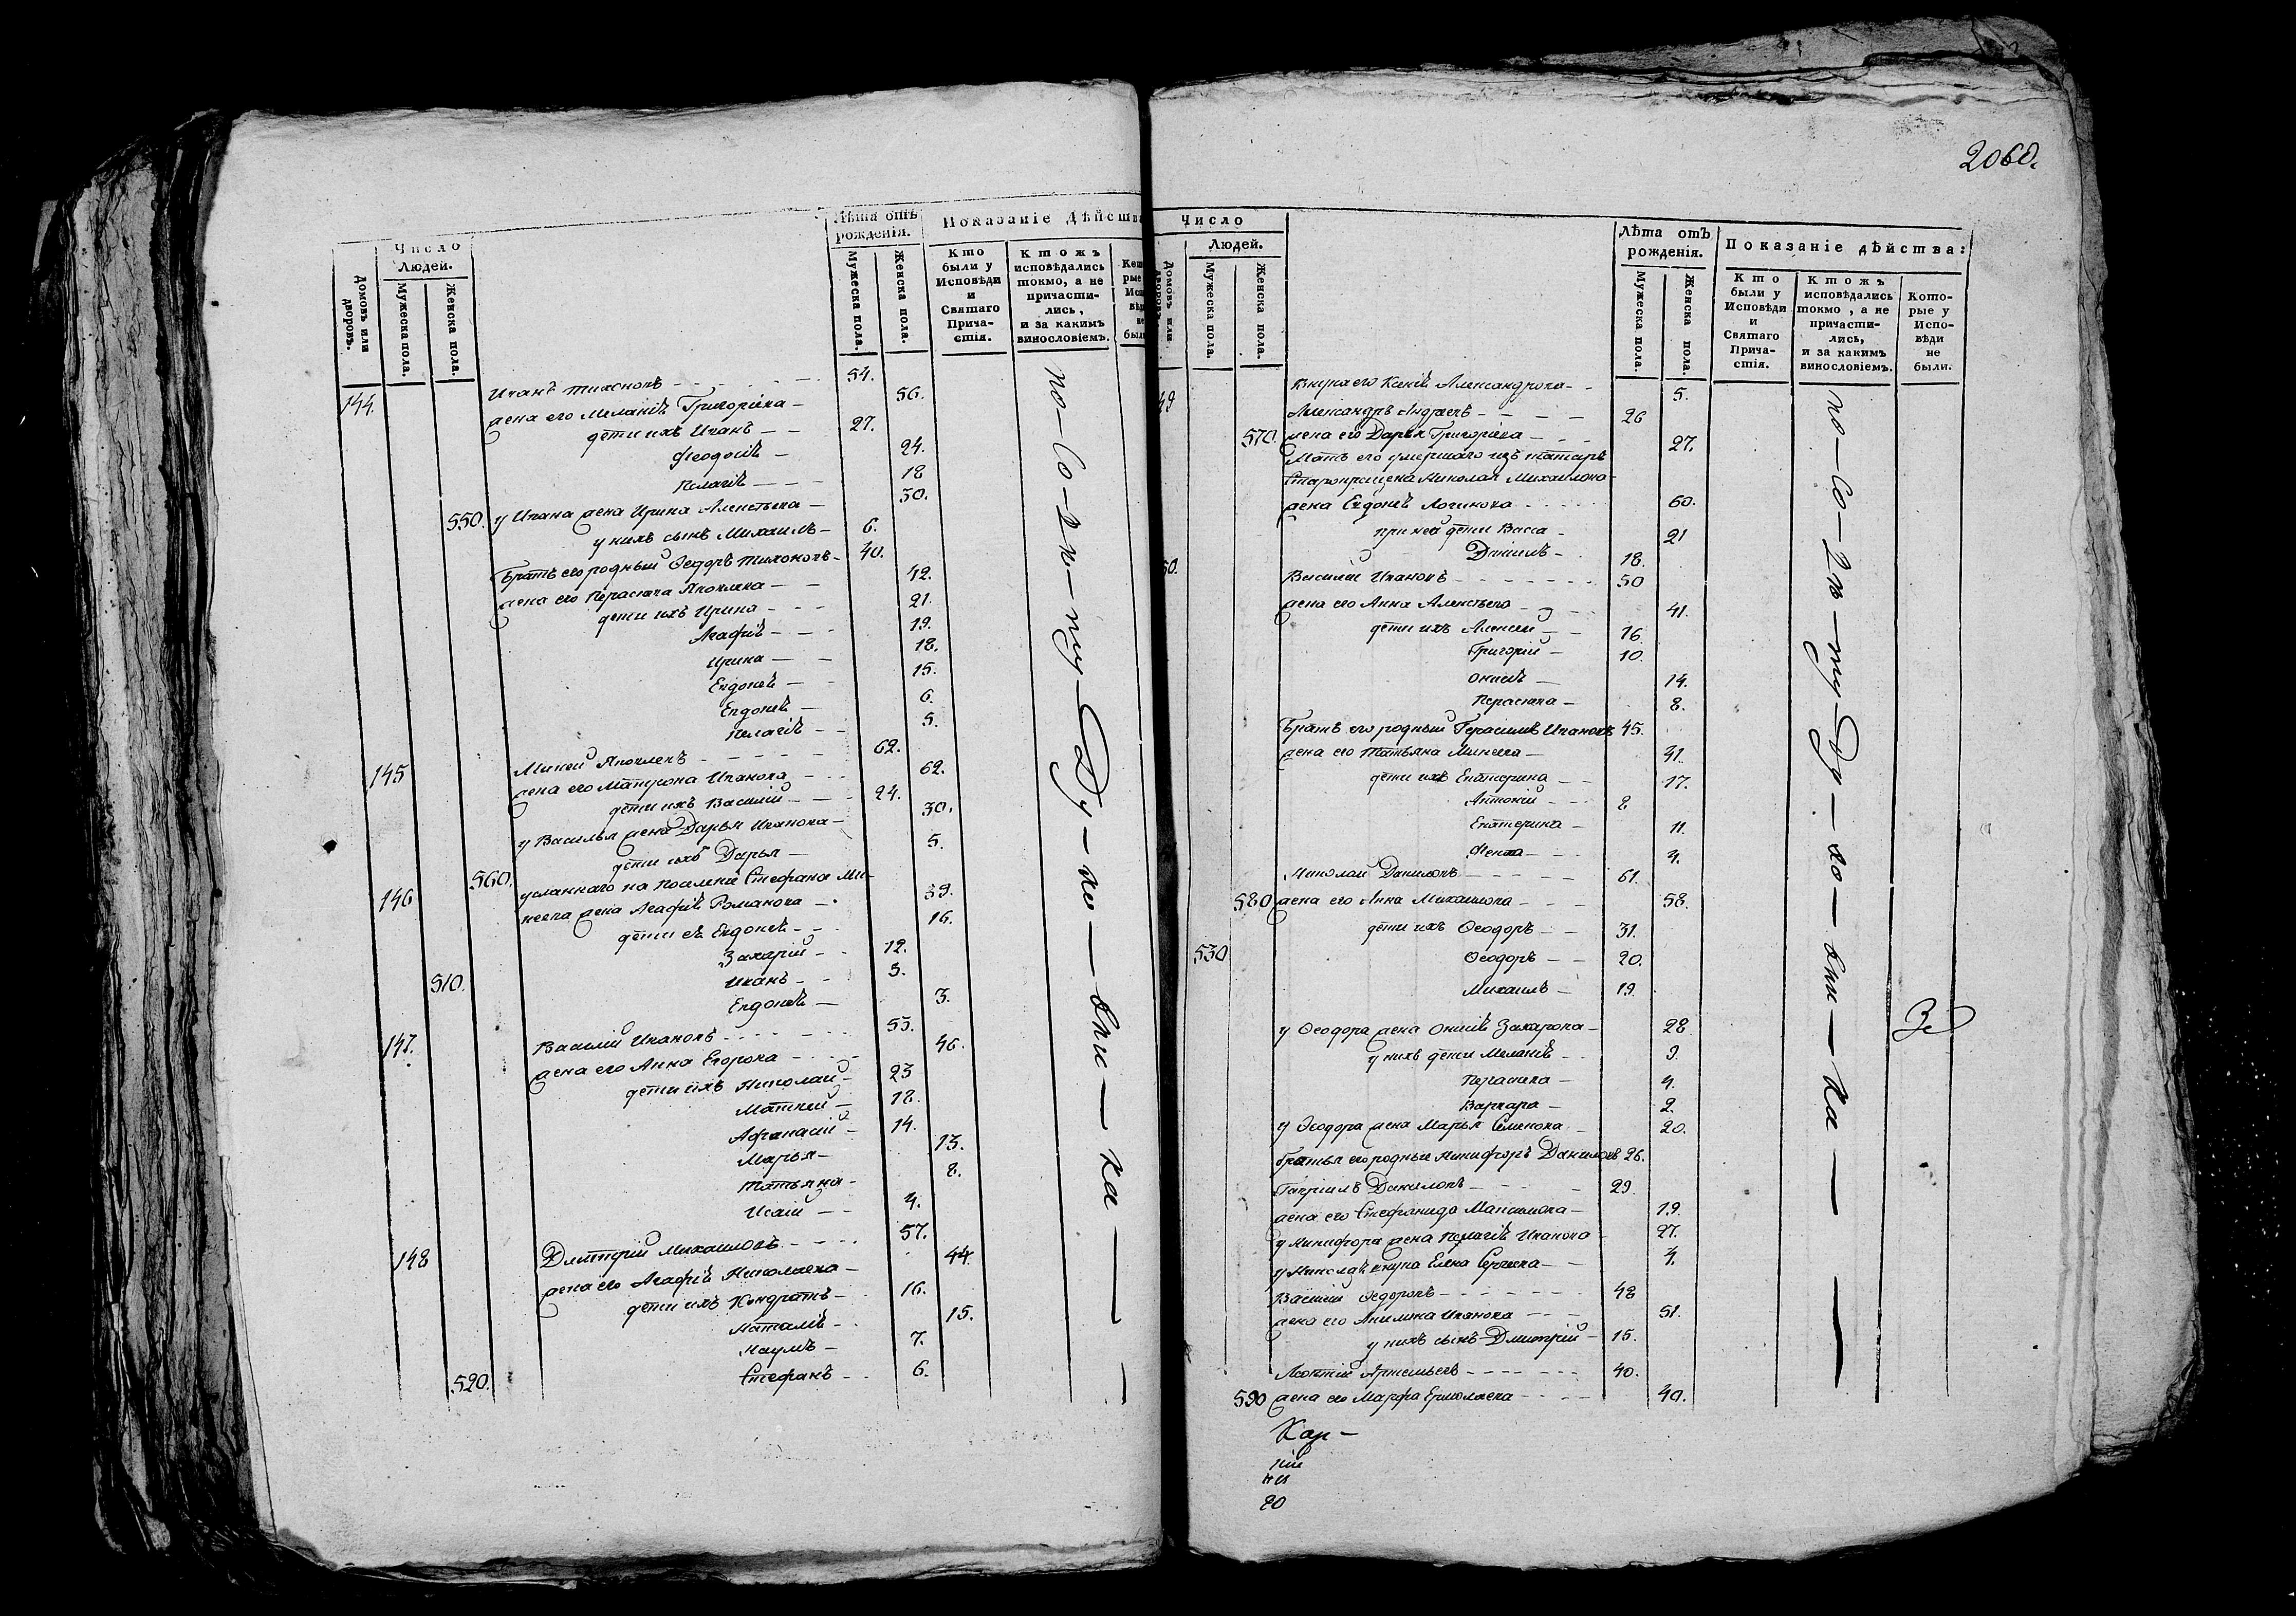 2060.
Число
Людей.
Домовъ или дворовъ.
Мужеска пола.
Женска пола.
Лѣта отъ рожденія.
Мужеска пола.
Женска пола.
Показаніе дѣйства
Кто были у Исповѣди и Святаго Прича-стія.
Ктожъ исповѣдались токмо, а не причасти-лись, и за какимъ винословіемъ.
144. Иванъ Тихоновъ 54.
жена его Меланіѣ Григоріева 56.
дѣти ихъ Иванъ 27.
Феодосіѣ 24.
Пелагіѣ 18
550. у Ивана жена Ирина Алексѣева 30.
у нихъ сынъ Михаилъ 6.
Братъ его родный Ѳедоръ Тихоновъ 40.
жена его Параскева Яковлева 42.
дѣти ихъ Ирина 21.
Агафіѣ 19.
Ирина 18.
Евдокіѣ 15.
Евдокіѣ 6.
Пелагіѣ 5.
145 Михей Яковлевъ 62.
жена его Матрона Иванова 62.
дѣти ихъ Василій 24.
у Василья жена Дарья Иванова 30.
дѣти ихъ Дарья 5.
146 560. усланнаго на поселеніе Стефана Ми-
хеева жена Агафіѣ Романова 39.
дѣти еѣ Евдокіѣ 16.
Захарій 12.
510. Иванъ 5.
Евдокіѣ 3.
147. Василій Ивановъ 55.
жена его Анна Егорова 46.
дѣти ихъ Николай 23
Матвей 18.
Афанасій 14.
Марья 13.
Татьяна 8.
Исаій 4.
148 Дмитрій Михаиловъ 57.
жена его Агафіѣ Николаева 44.
дѣти ихъ Кондратъ 16.
Наталіѣ 15.
Наумъ 7.
520. Стефанъ 6.
Число
Людей.
Домовъ или дворовъ.
Мужеска пола.
Женска пола.
Лѣта отъ рожденія.
Мужеска пола.
Женска пола.
Показаніе дѣйства:
Кто были у Исповѣди и Святаго Прича-стія.
Ктожъ исповѣдались токмо, а не причасти-лись, и за какимъ винословіемъ.
Кото-рые у Испо-вѣди не были.
Внука его Ксеніѣ Александрова 5.
49 Александръ Андреевъ 26
570. жена его Дарья Григоріева 27.
Мать его умершаго изъ татаръ
Старокрещена Николая Михаилова
жена Евдокіѣ Логинова 60.
при ней дѣти Васса 21
Даніилъ 18.
50. Василій Ивановъ 50
жена его Анна Алексѣева 41.
дѣти ихъ Алексей 16
Григорій 10.
14.
Параскева 8.
Братъ его родный Герасимъ Ивановъ 45.
жена его Татьяна Михеева 41.
дѣти ихъ Екатерина 17.
Антоній 8
Екатерина 11.
4.
Николай Даниловъ 61.
580 жена его Анна Михаилова 58.
дѣти ихъ Ѳеодоръ 31.
530 Ѳеодоръ 20.
Михаилъ 19.
у Ѳеодора жена Захарова 28
у нихъ дѣти Меланіѣ 9.
Параскева 4.
Варвара 2.
у Ѳеодора жена Марья Семенова 20.
братья его родные Никифоръ Даниловъ 26.
Гавріилъ Даниловъ 29.
жена его Стефанида Максимова 19.
у Никифора жена Пелагіѣ Иванова 27.
у Николаѣ внука Елена Сергеева 4.
Василій Ѳедоровъ 48
жена его Акилина Иванова 51.
у нихъ сынъ Дмитрій 15.
Артемьевъ 40.
590 жена его Марфа Ермолаева 40.